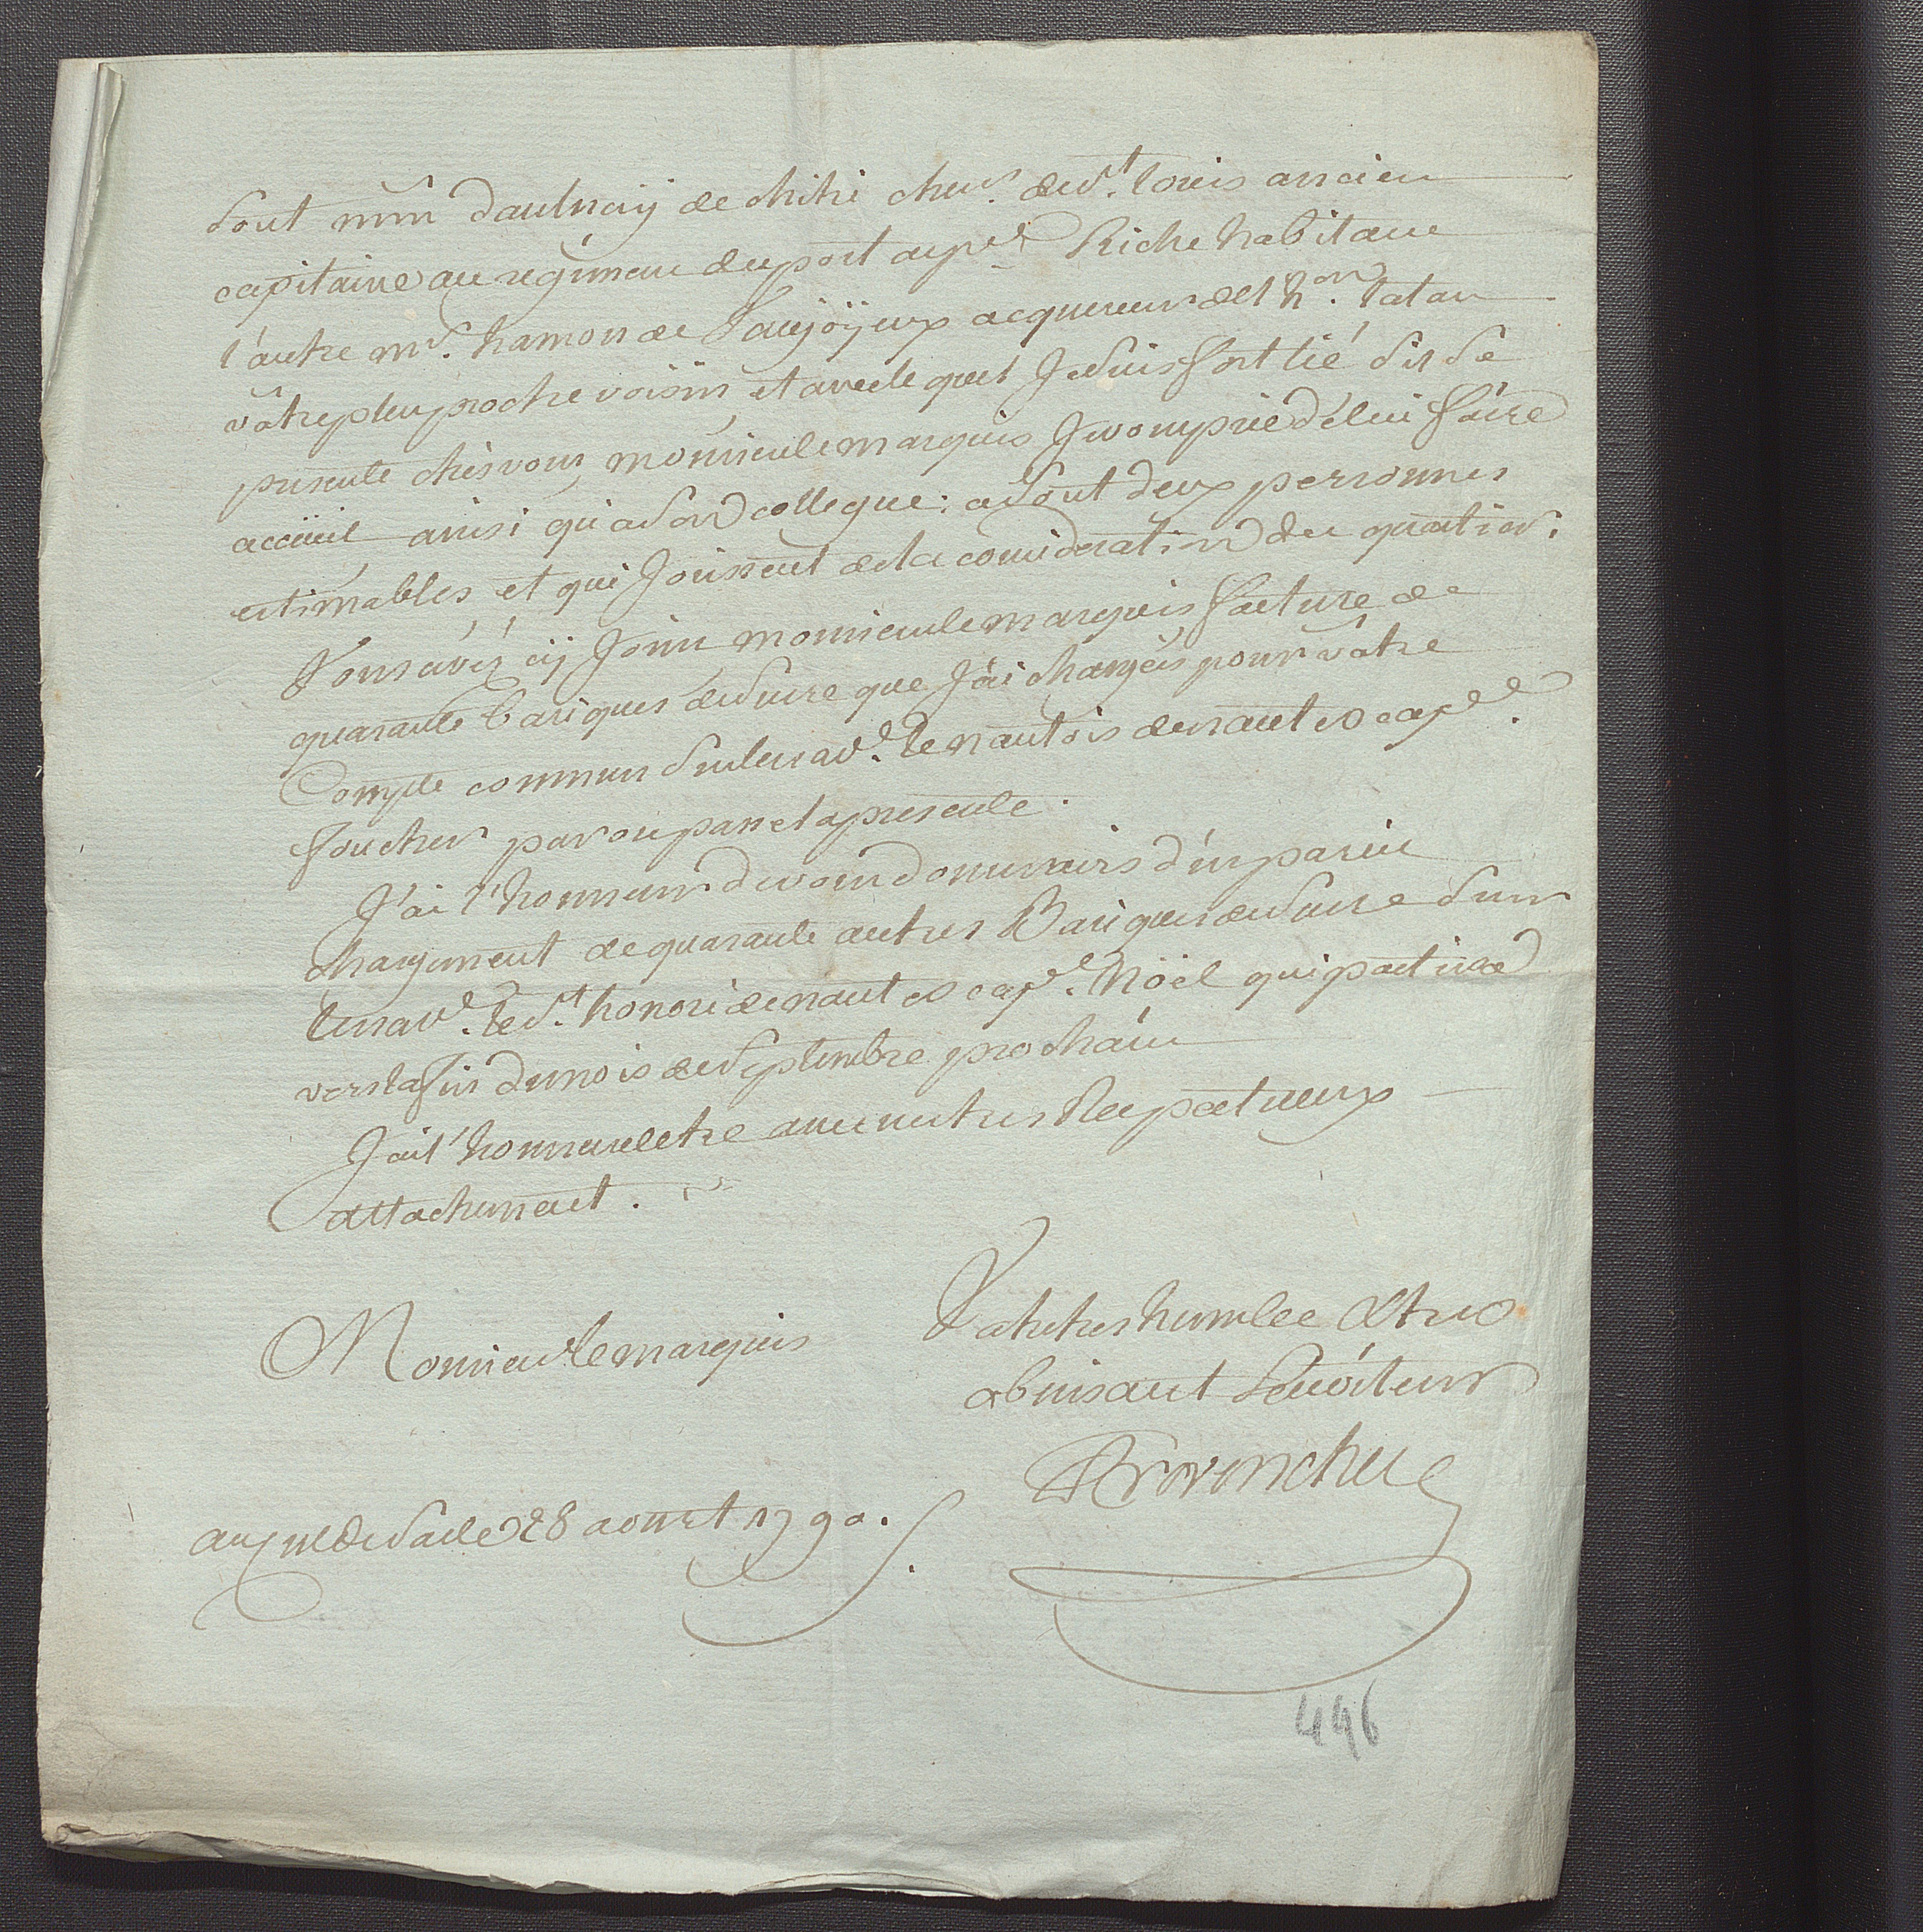 sont mm daulnaÿ de chitré cheu.r de st. Louis ancien
capitaine au regiment du port au p.ce Riche habitant
l'autre mr. hamon de Vaujoÿeux acquereur de l'h.on tatan
vôtre plus proche voisin, et avec le quel Je suis fort lié s'il se
presente chés vous, monsieur le marquis Je vous prie dé lui faire
accüeil ainsi qu'a son collegue: ce sont deux personnes
estimables, et qui Jouissent de la consideration du quartier.
Vous avéz cÿ Joint monsieur le marquis, facture de
quarante bariques de sucre que J'ai chargées pour vôtre
Compte commun sur le nav.e le nantois de nantes cap.e
foucher par ou passe la presente.
J'ai l'honneur de vous donner avis d'un pareil
chargement de quarante autres Bariques de sucre sur
le nav.e le st. honoré de nantes cap.e Noël qui partira
vers la fin du mois de septembre prochain
J'ai l'honneur detre avec un tres Respectueux
attachement.
Monsieur le marquis
Votre tres humble & tres
obeissant Serviteur
Provencher
au cul de sac le 28 aoust 1790.
446